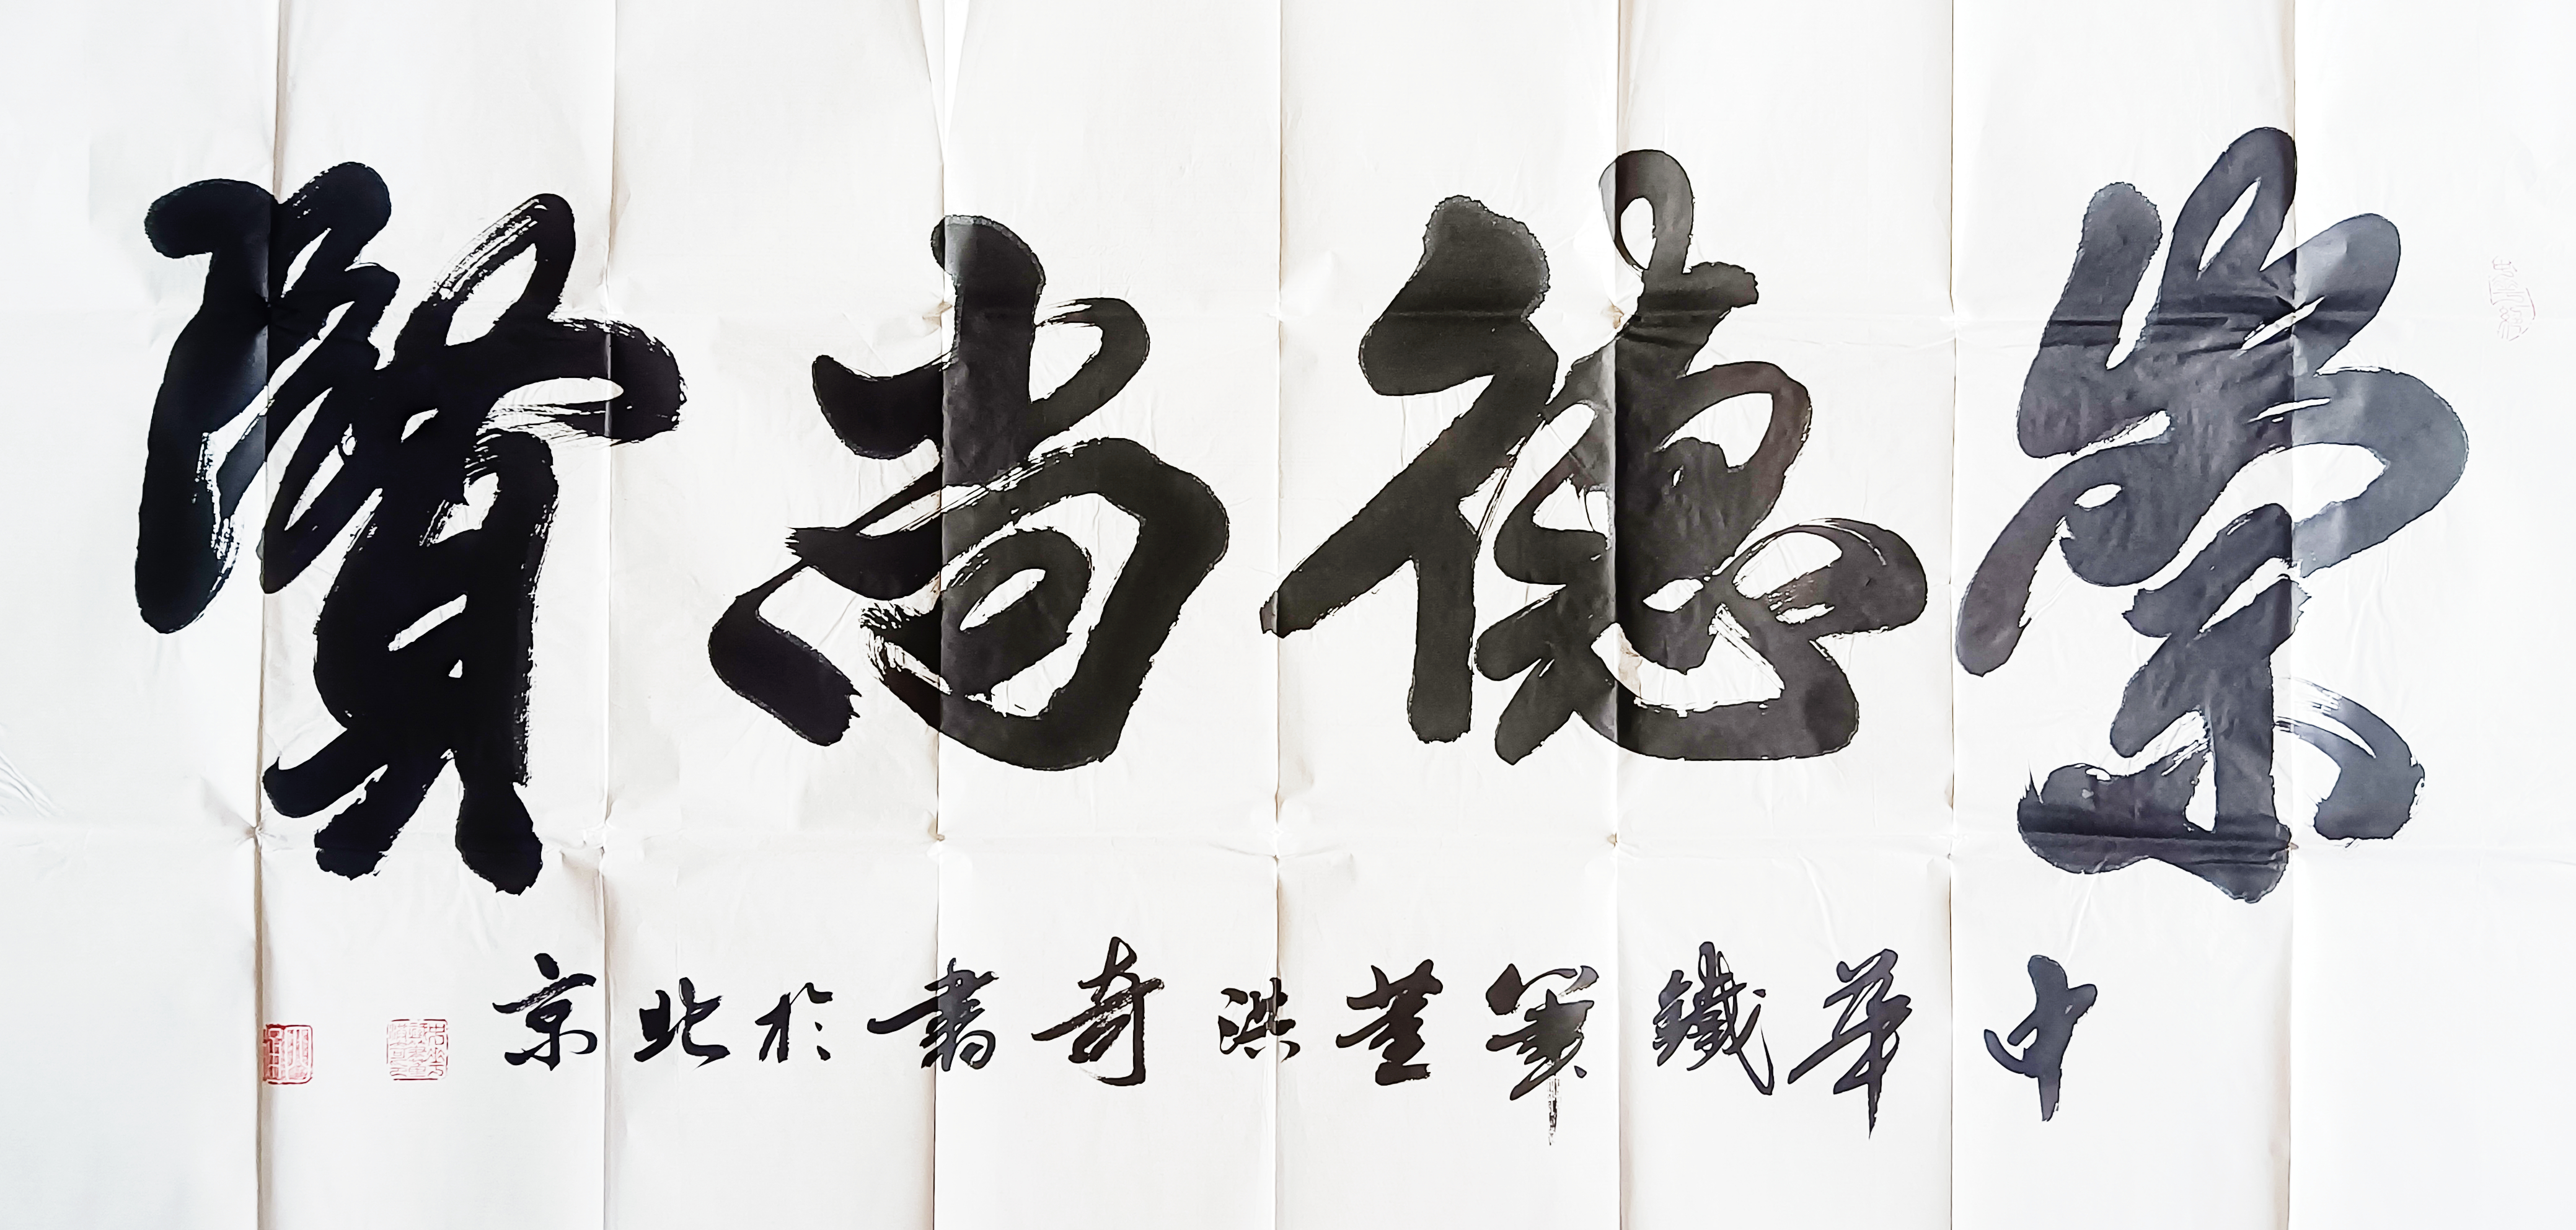 崇德尚賢
中華鐵筆董洪奇書於北京